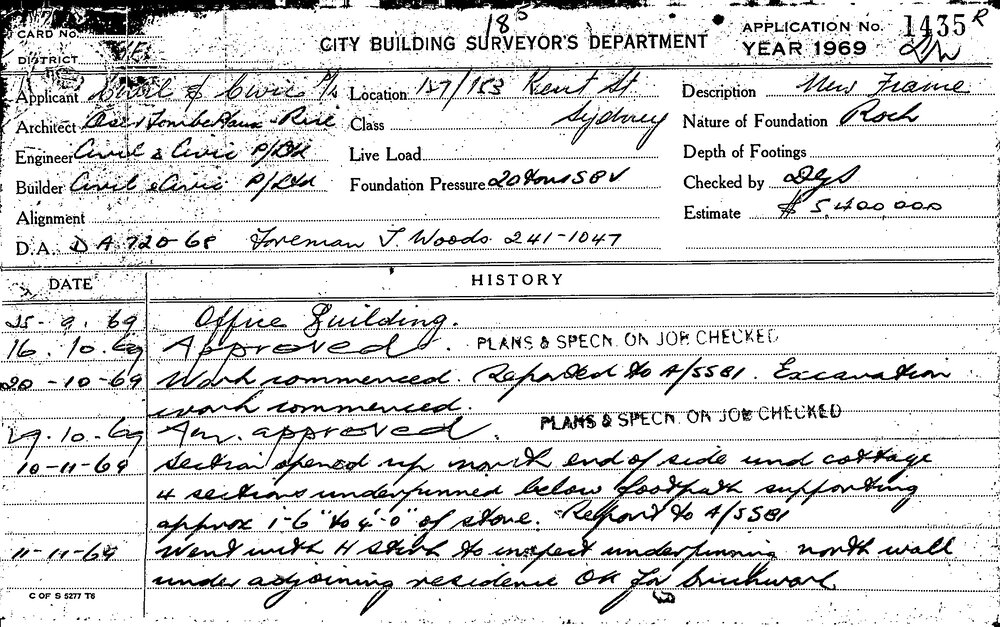 18⁵
CARD No.
CITY BUILDING SURVEYOR'S DEPARTMENT
APPLICATION No. 1435 R
DISTRICT
YEAR 1969
Applicant Civil & Civic P/L Location 157/153 Kent St Description New Frame
Architect Rice Class Sydney Nature of Foundation Rock
Engineer Civil & Civic P/Ltd Live Load Depth of Footings
Builder Civil & Civic P/Ltd Foundation Pressure 20 tons SBV Checked by DGS
Alignment Estimate $5,400 000
D.A. DA 720-68 Foreman J. Woods 241-1047
DATE HISTORY
25-9.69 Office Building.
16.10.69 Approved. PLANS & SPECN. ON JOB CHECKED
20-10-69 Work commenced. Reported to A/SSBI. Excavation
work commenced. PLANS & SPECN. ON JOB CHECKED
29.10.69 Am. approved.
10-11-69 Section opened up north end of side und cottage
4 sections underpinned below footpath supporting
approx 1'-6" to 4'-0" of stone. Report to A/SSBI
11-11-69 Went with H to inspect underpinning north wall
under adjoining residence OK for brickwork
C OF S 5277 T6